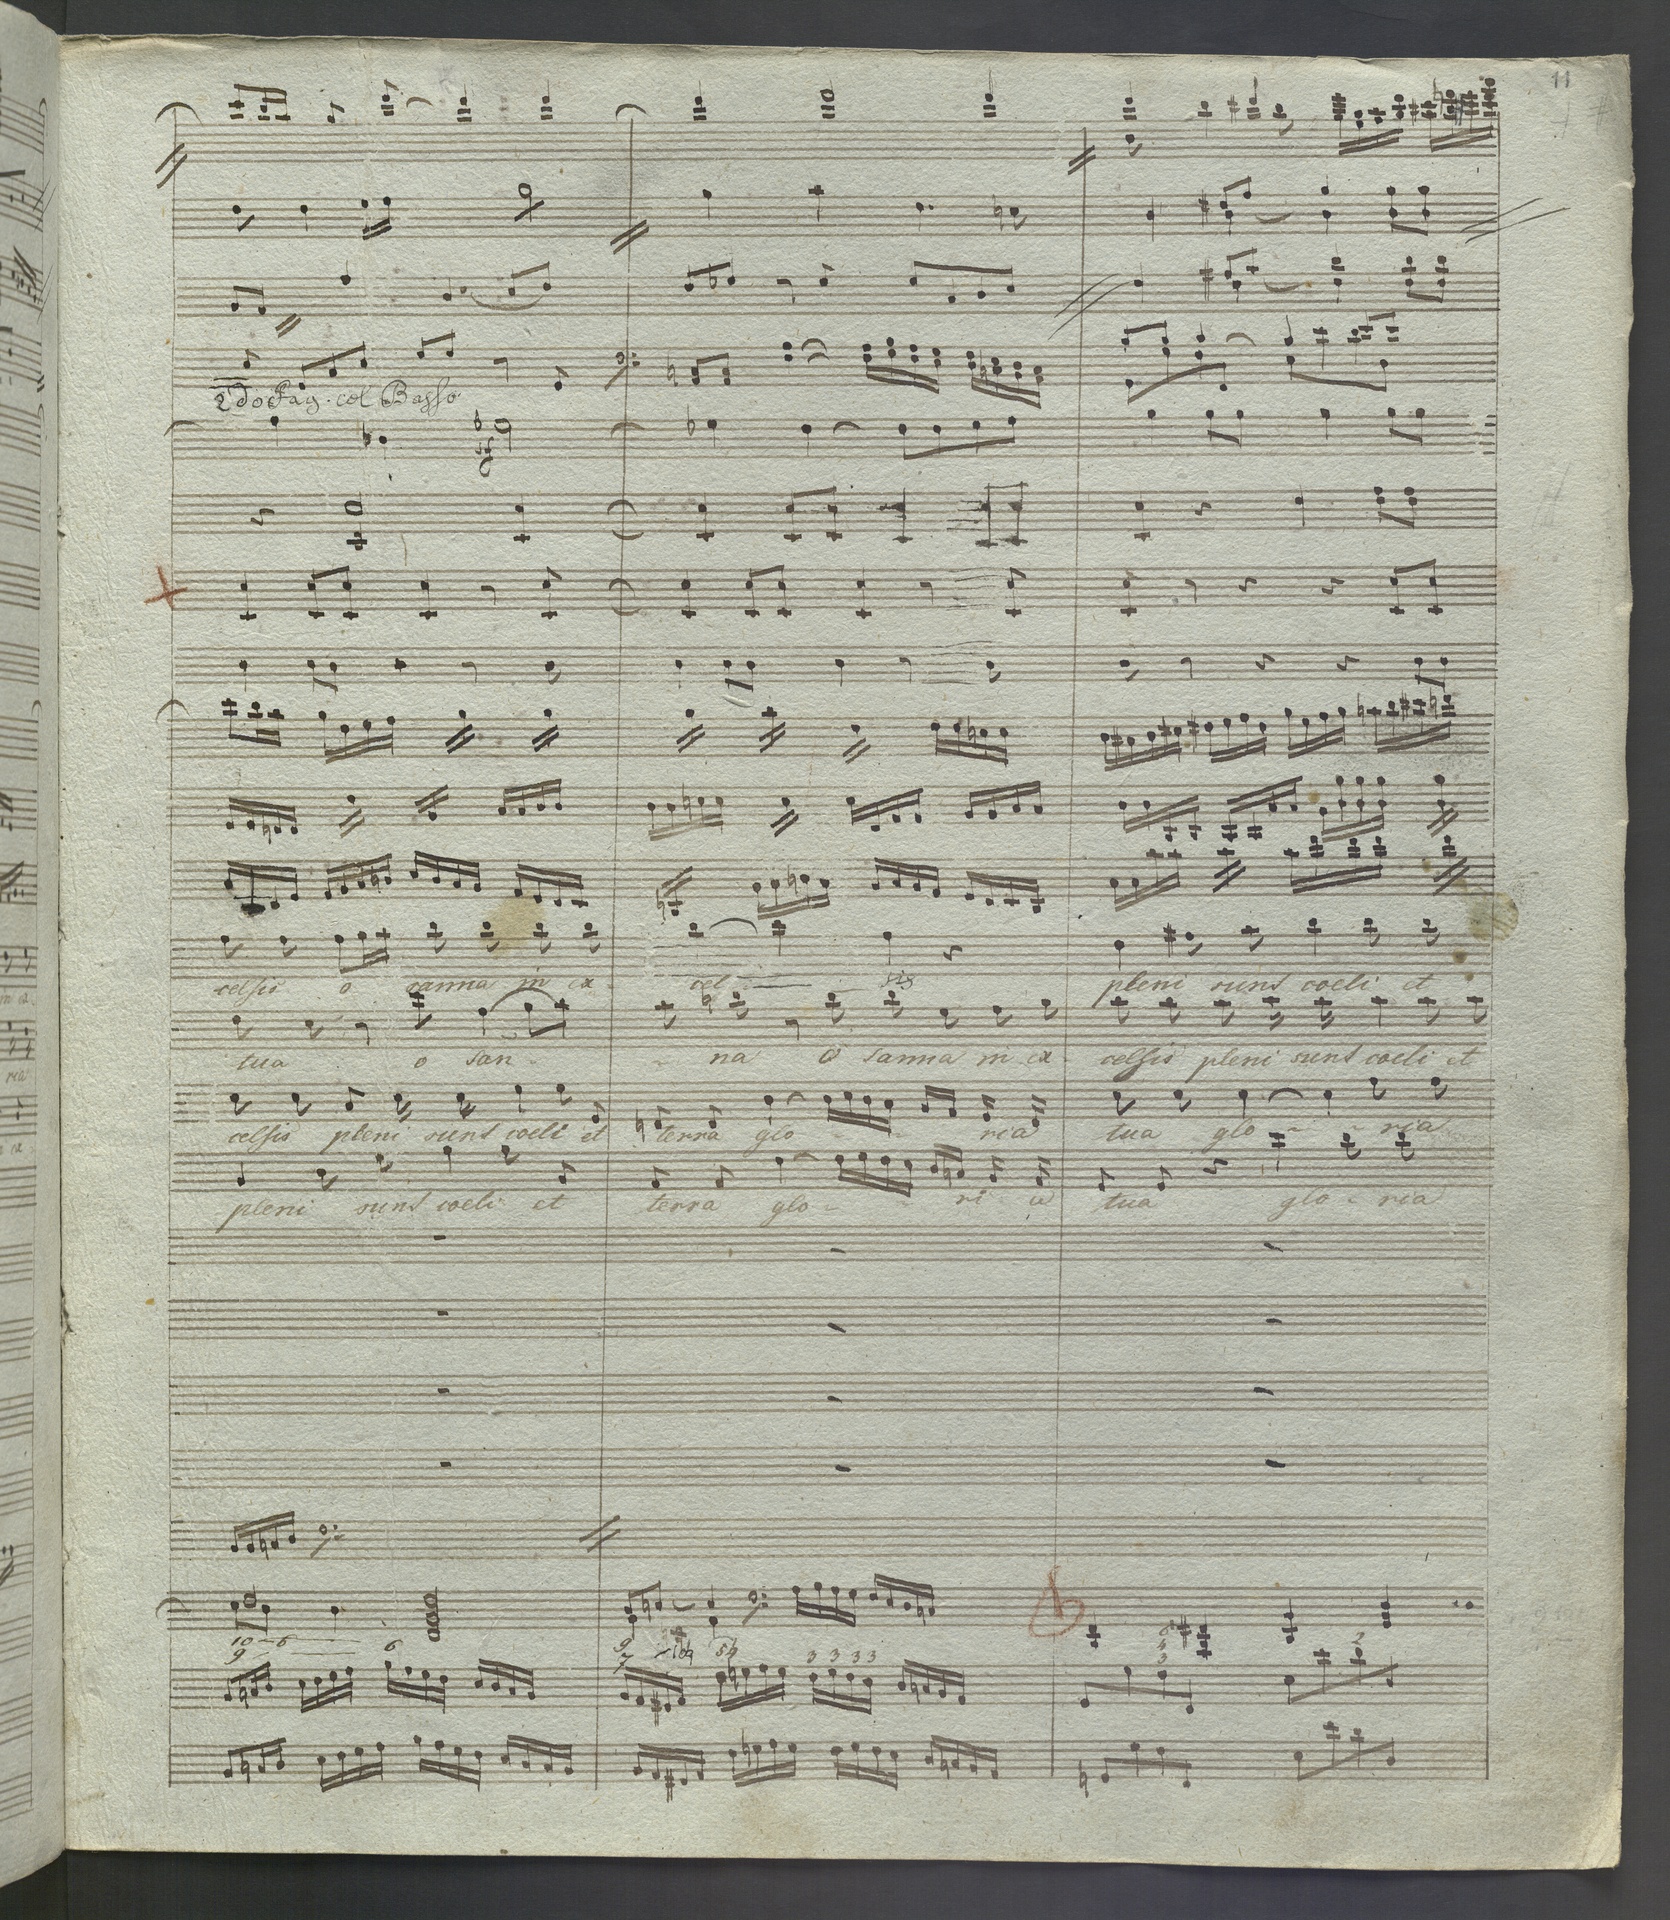 11
2do Fag. col Basso
sf
celsis o sanna in ex- cel - sis pleni sunt coeli et
tua o san - - na O sanna in ex- celsis pleni sunt coeli et
celsis pleni sunt coeli et terra glo - - ria tua glo - - ria
pleni sunt coeli et terra glo - - ri a tua glo - ria
10 - 6 6 9
9 7 5 3 3 3 3 3 2